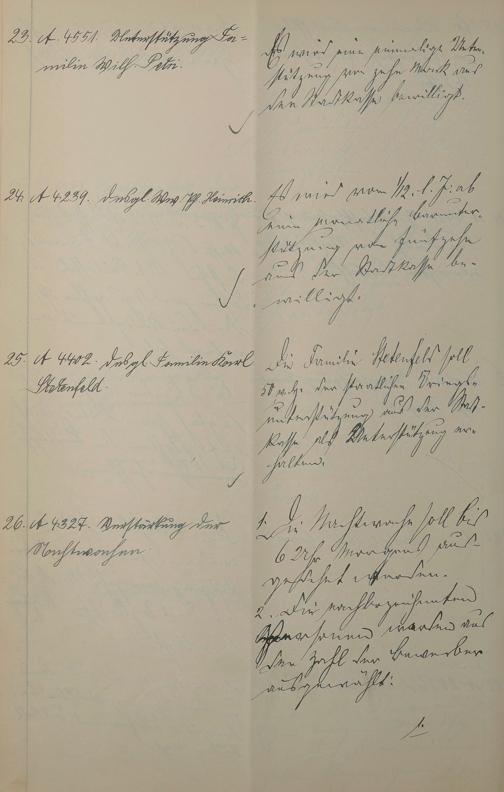 23. A 4551. Unterstützung Fa-
milie Wilh. Petri.
Es wird eine einmalige Unter-
stützung von zehn Mark aus
der Stadtkasse bewilligt.
24. A 4239. desgl. Ww. Ph. Heinrich.
Es wird vom 1/2. l. J. ab
eine monatliche Barunter-
stützung von fünfzehn
aus der Stadtkasse be-
willigt.
25. A 4402. desgl. Familie Karl
Stetenfeld.
Die Familie Stetenfels soll
50 v. H. der staatlichen Kriegs-
unterstützung aus der Stadt-
kasse als Unterstützung er-
halten.
26. A 4327. Verstärkung der
Nachtwachen
1. Die Nachtwache soll bis
6 Uhr Morgens aus-
gedehnt werden.
2. Die nachbezeichneten
Personen werden aus
der Zahl der Bewerber
ausgewählt:
1.